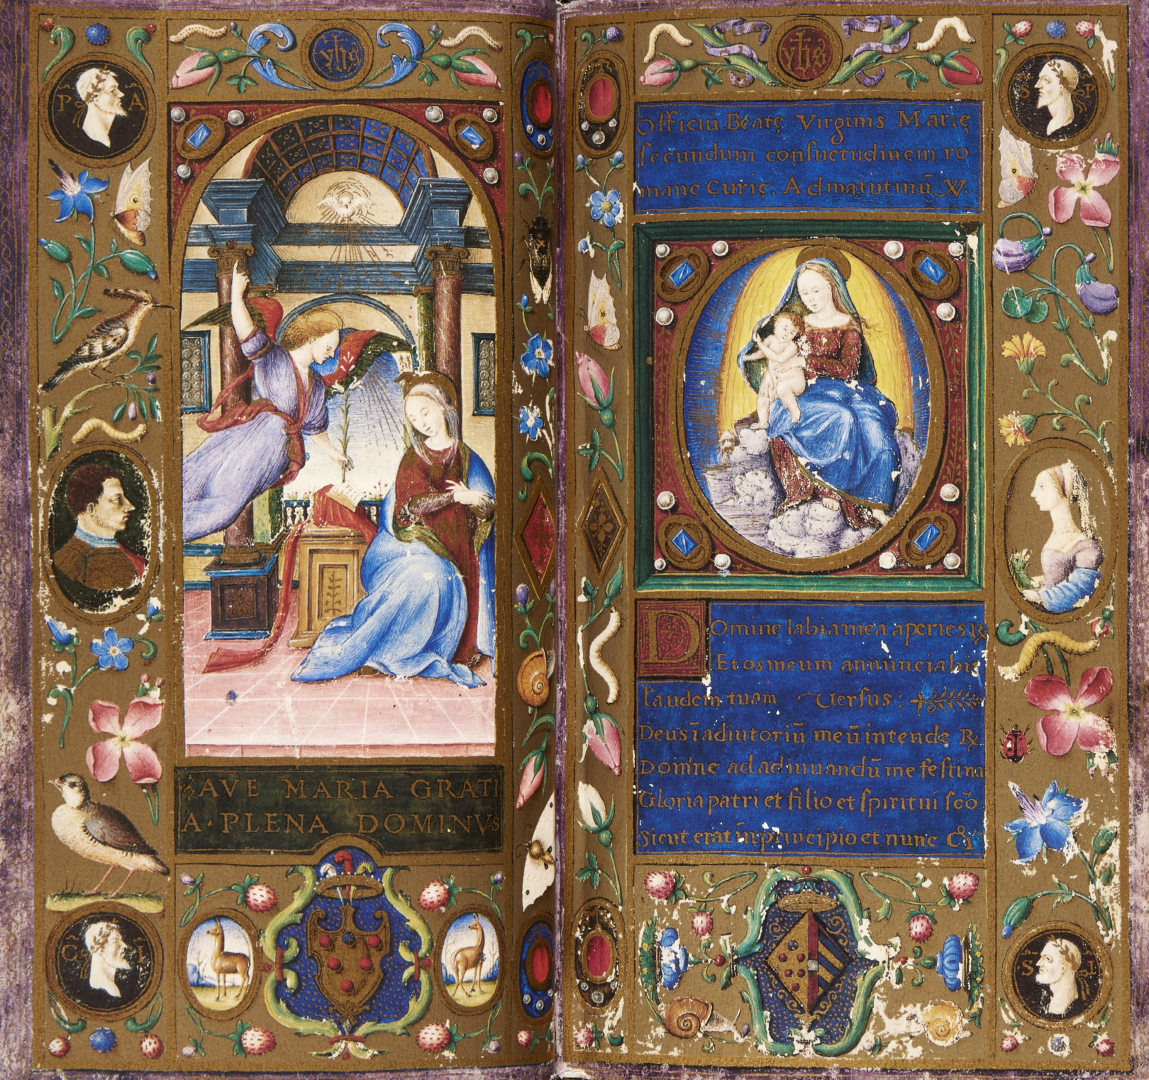 yhs
P A
AVE MARIA GRATI
A · PLENA DOMINVS
yhs
S P
Officiũ Beatę Virginis Marię
secundum consuetudinem ro
mane Curię. Ad matutinũ. V.
Domine labia mea aperies ℟
Et os meum annunciabit
laudem tuam Versus:
Deus ĩ adiutoriũ meũ intende ℟
Domine ad adiuuandũ me festina
Gloria patri et filio et spiritui scõ
Sicut erat ĩn principio et nunc &